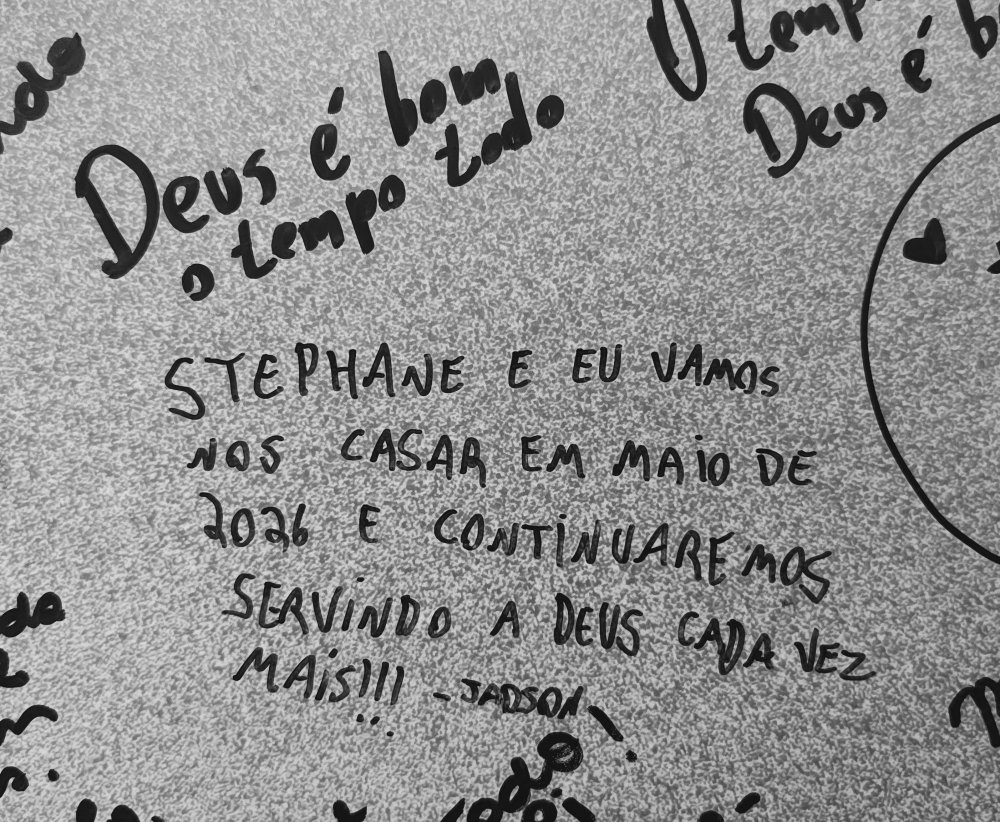 Deus é bom
o tempo todo
O temp
Deus é b
STEPHANE E EU VAMOS
NOS CASAR EM MAIO DE
2026 E CONTINUAREMOS
SERVINDO A DEUS CADA VEZ
MAIS!!! -JADSON